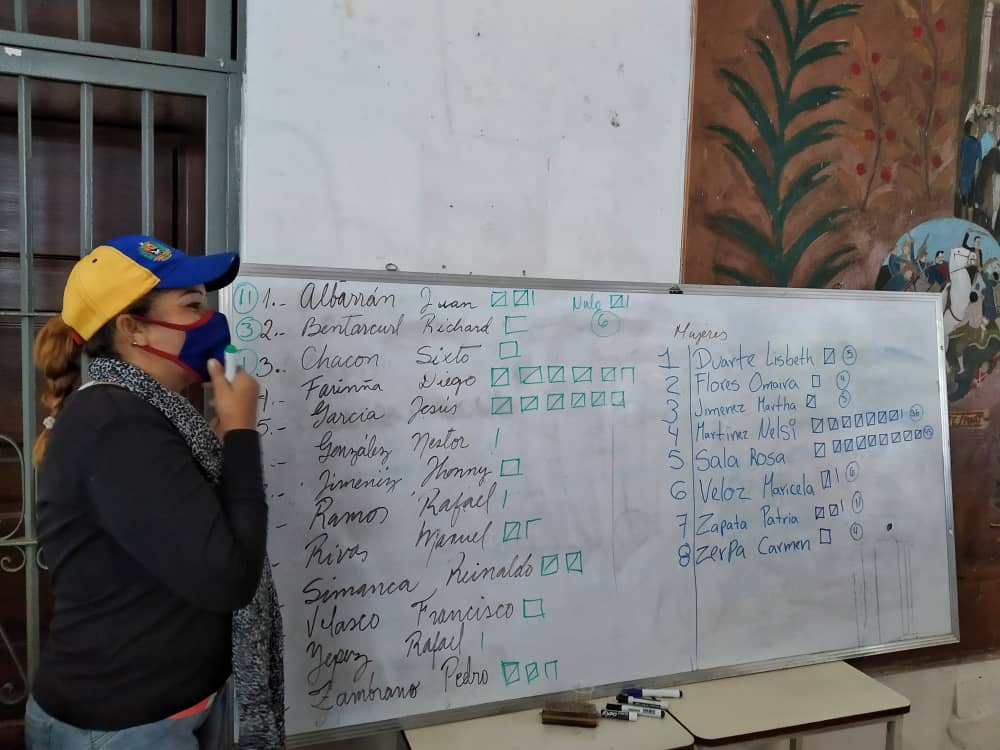 11 1.- Albarrán Juan
3 2.- Bentarcurl Richard
1 3.- Chacon Sixto
Farinña Diego
5.- Garcia Jesús
González Nestor
Jimeniz Jhonny
Ramos Rafael
Rivas Manuel
Simanca Reinaldo
Velasco Francisco
Yepez Rafael
Zambrano Pedro
Nulo
6
Mujeres
1 Duarte Lisbeth 5
2 Flores Omaira 4
3 Jimenez Martha 5
4 Martinez Nelsi 36
5 Sala Rosa 45
6 Veloz Maricela 6
7 Zapata Patria 11
8 Zerpa Carmen 4